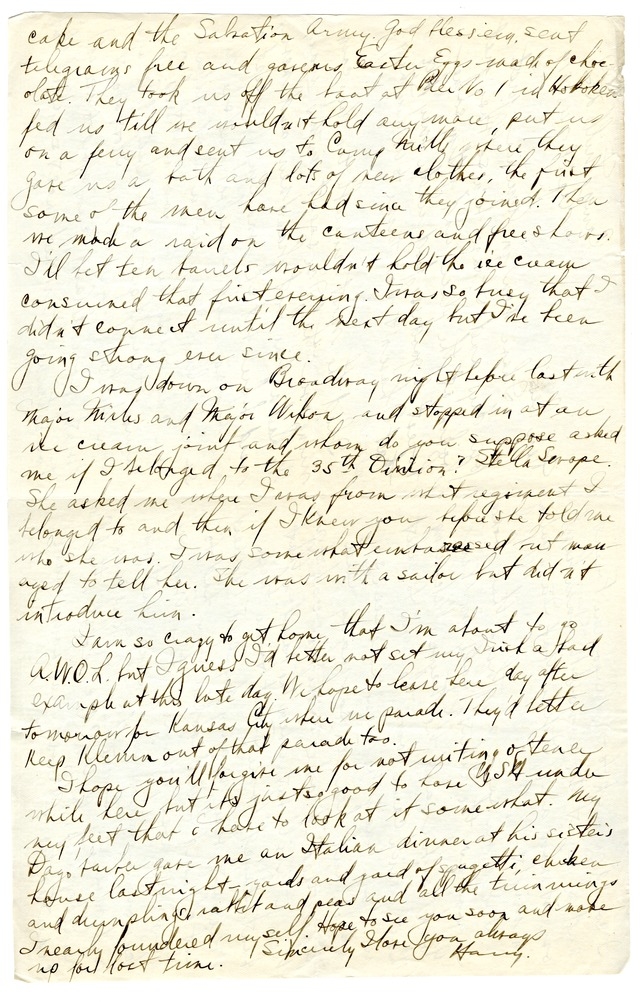 cake and the Salvation Army. God bless 'em, sent
telegrams free and gave us Easter Eggs made of choc-
olate. They took us off the boat at Pier No 1 in Hoboken
fed us till we wouldn't hold any more, put us
on a ferry and sent us to Camp Mills where they
gave us a bath and lots of new clothes, the first
some of the men have had since they joined. Then
we made a raid on the canteens and free shows.
I'll bet ten barrels wouldn't hold the ice cream
consumed that first evening. I was so busy that I
didn't connect until the next day but I've been
going strong ever since.
I was down on Broadway night before last with
Major Miles and Major Wilson, and stopped in at an
ice cream joint and whom do you suppose asked
me if I belonged to the 35th Division? Stella Swope.
She asked me where I was from what regiment I
belonged to and then if I knew you before she told me
who she was. I was somewhat embarressed but man
aged to tell her. She was with a sailor but didn't
introduce him.
I am so crazy to get home that I'm about to go
A.W.O.L. but I guess I'd better not set my Irish a bad
example at this late day. We hope to leave here day after
tomorrow for Kansas City where we parade. They'd better
keep Klemm out of that parade too.
I hope you'll forgive me for not writing oftener
while here but its just so good to have USA under
my feet that I have to look at it somewhat. My
Dago barber gave me an Italian dinner at his sister's
house last night - yards and yards of spagetti, chicken
and dumplings rabbit and peas and all the trimmings
I nearly foundered myself. Hope to see you soon and make
up for lost time. Sincerely I love you always
Harry.